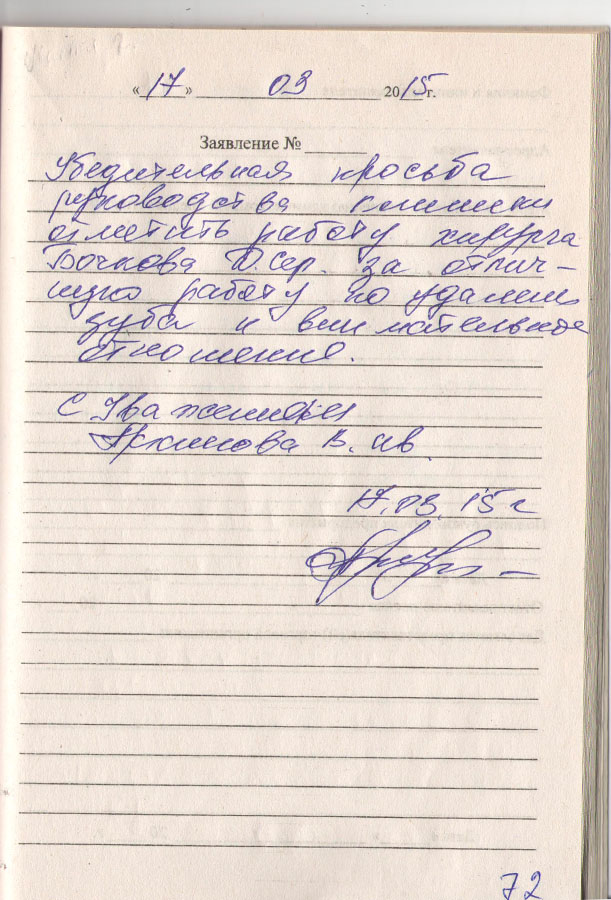 «17» 03 2015 г.
Заявление №
Убедительная просьба
руководства клиники
отметить работу хирурга
Бочкова Д. Сер. за отлич-
ную работу по удалению
зуба и внимательное
отношение.
С Уважением
В. Ив.
17.03.15 г
72